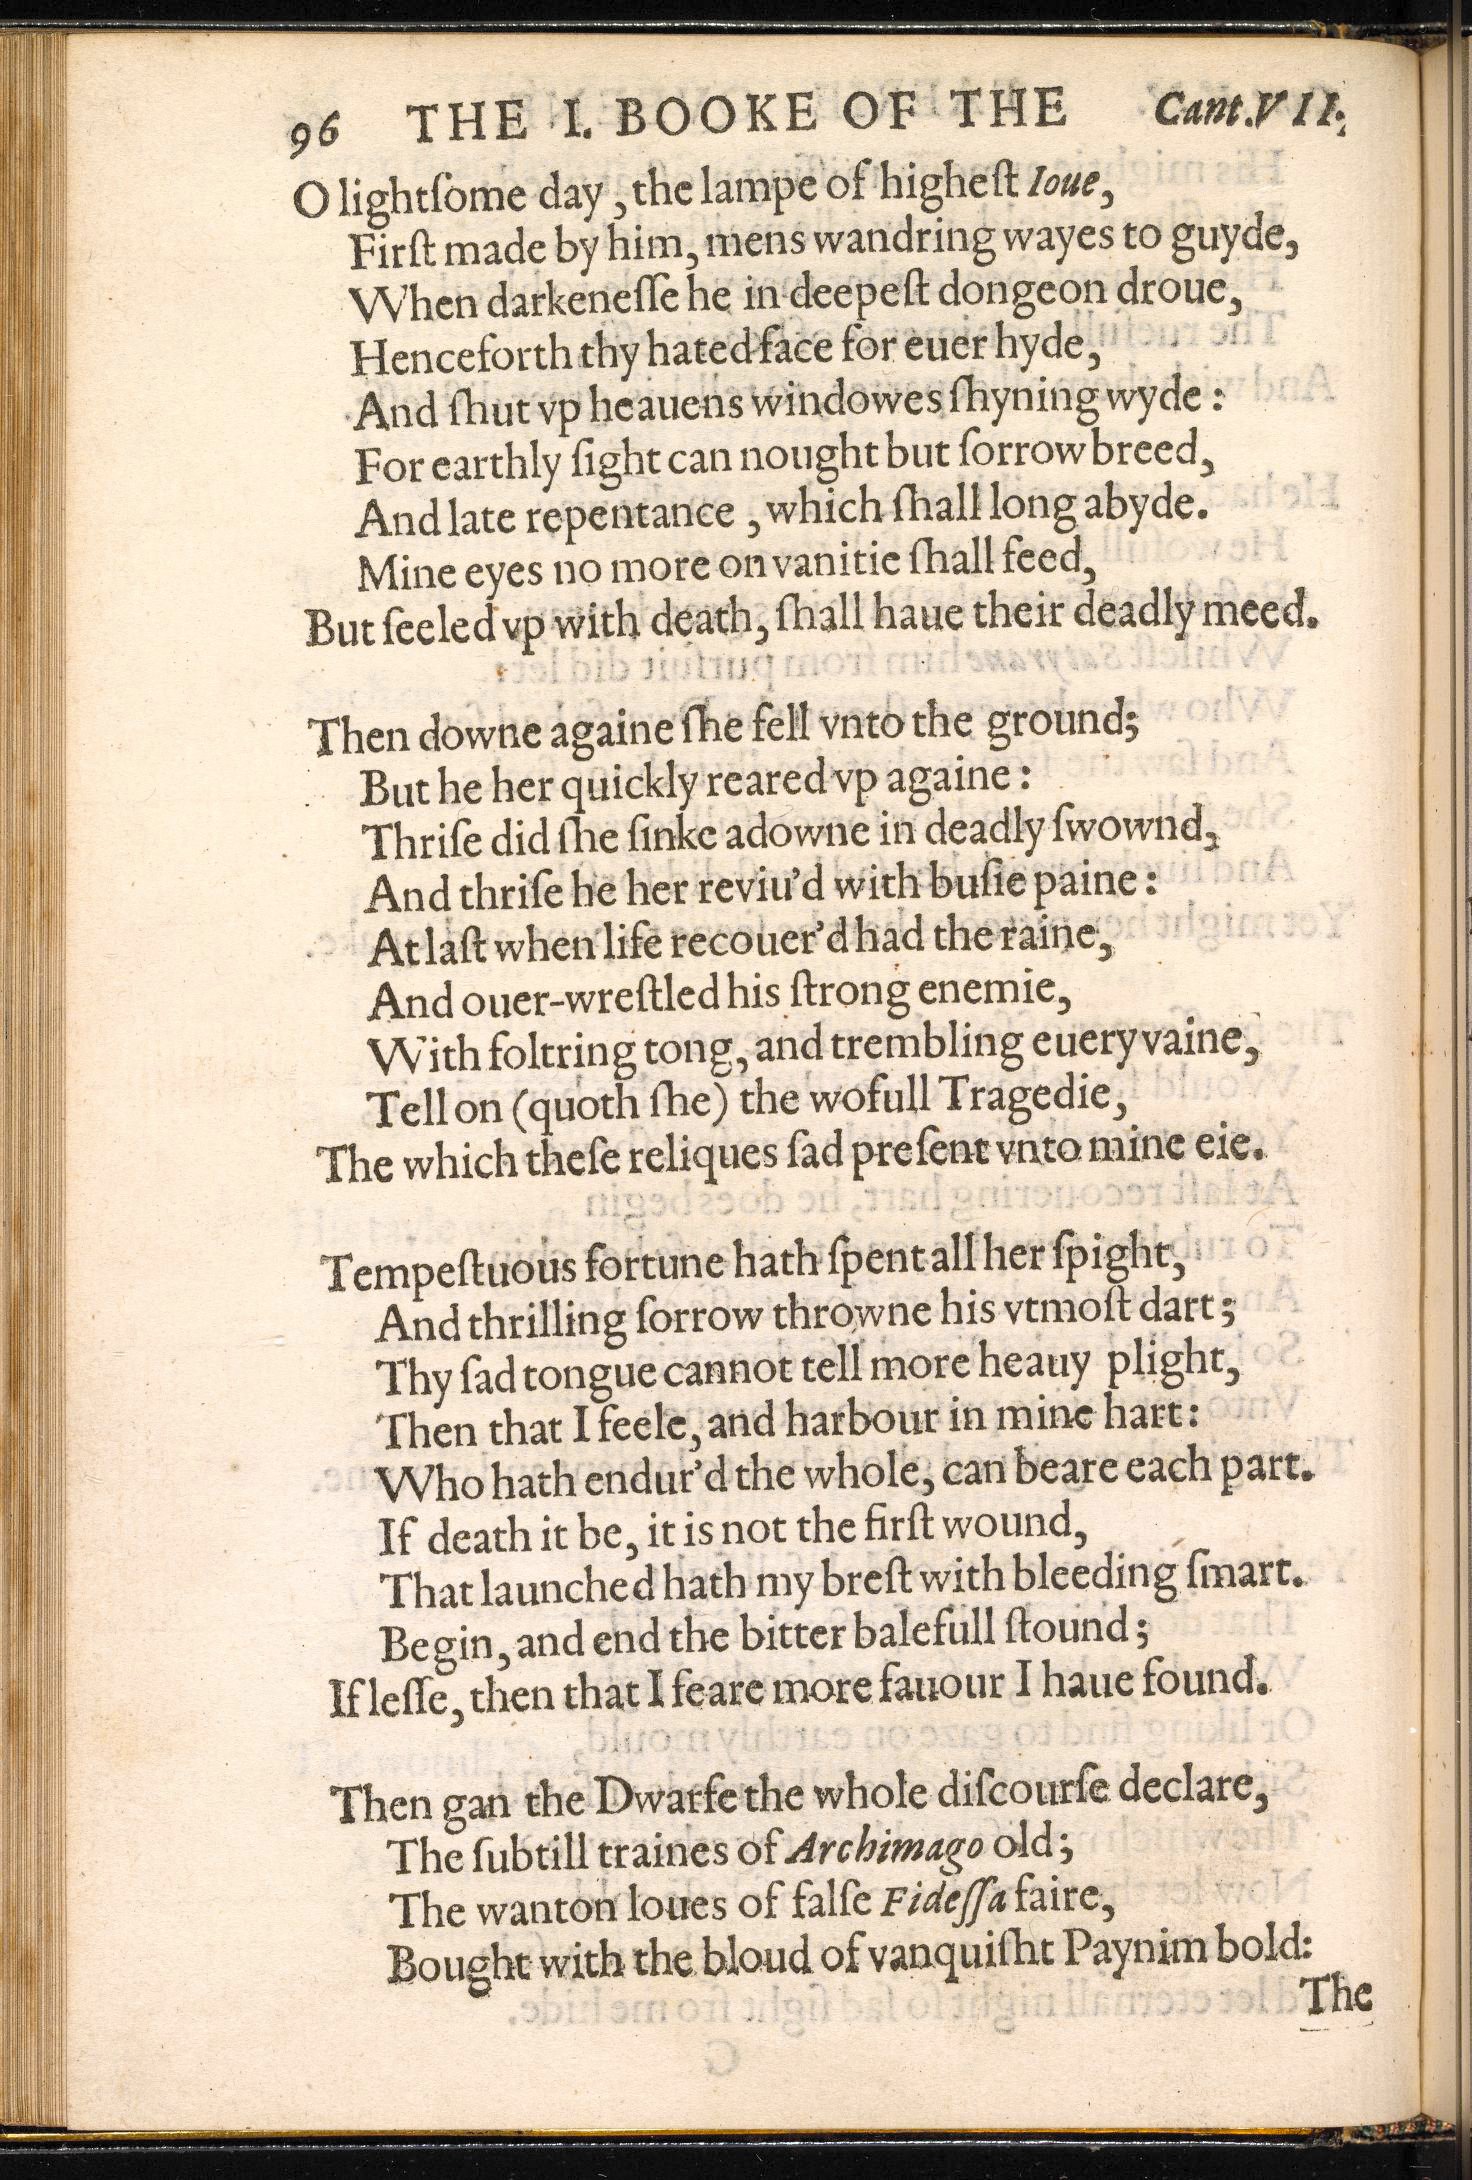 96 THE I. BOOKE OF THE Cant. VII.
O lightſome day, the lampe of higheſt Ioue,
Firſt made by him, mens wandring wayes to guyde,
When darkeneſſe he in deepeſt dongeon droue,
Henceforth thy hated face for euer hyde,
And ſhut vp heauens windowes ſhyning wyde:
For earthly ſight can nought but ſorrow breed,
And late repentance, which ſhall long abyde.
Mine eyes no more on vanitie ſhall feed,
But ſeeled vp with death, ſhall haue their deadly meed.
Then downe againe ſhe fell vnto the ground;
But he her quickly reared vp againe:
Thriſe did ſhe ſinke adowne in deadly ſwownd,
And thriſe he her reviu'd with buſie paine:
At laſt when life recouer'd had the raine,
And ouer-wreſtled his ſtrong enemie,
With foltring tong, and trembling euery vaine,
Tell on (quoth ſhe) the wofull Tragedie,
The which theſe reliques ſad preſent vnto mine eie.
Tempeſtuous fortune hath ſpent all her ſpight,
And thrilling ſorrow throwne his vtmoſt dart;
Thy ſad tongue cannot tell more heauy plight,
Then that I feele, and harbour in mine hart:
Who hath endur'd the whole, can beare each part.
If death it be, it is not the firſt wound,
That launched hath my breſt with bleeding ſmart.
Begin, and end the bitter balefull ſtound;
If leſſe, then that I feare more fauour I haue found.
Then gan the Dwarfe the whole diſcourſe declare,
The ſubtill traines of Archimago old;
The wanton loues of falſe Fideſſa faire,
Bought with the bloud of vanquiſht Paynim bold:
The